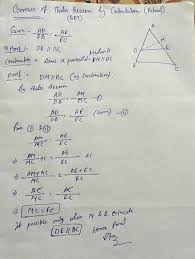 Converse of Thales theorem by Contradiction (Actual)
(BPT)
Given :- AD/DB = AE/EC
To Prove :- DE ∥ BC
Construction = Draw a parallel DM ∥ BC
Proof :- DM ∥ BC (by construction)
By thales theorem
AD/DB = AM/MC - ①
AD/DB = AE/EC (given) - ②
From ① & ②
AM/MC = AE/EC
AM/MC + 1 = AE/EC + 1
⇒ AM + MC/MC = AE + EC/EC
⇒ AC/MC = AC/EC
⇒ MC = EC
it possible only when M & E coincide
DE ∥ BC Hence proved
A
D
M
E
B
C